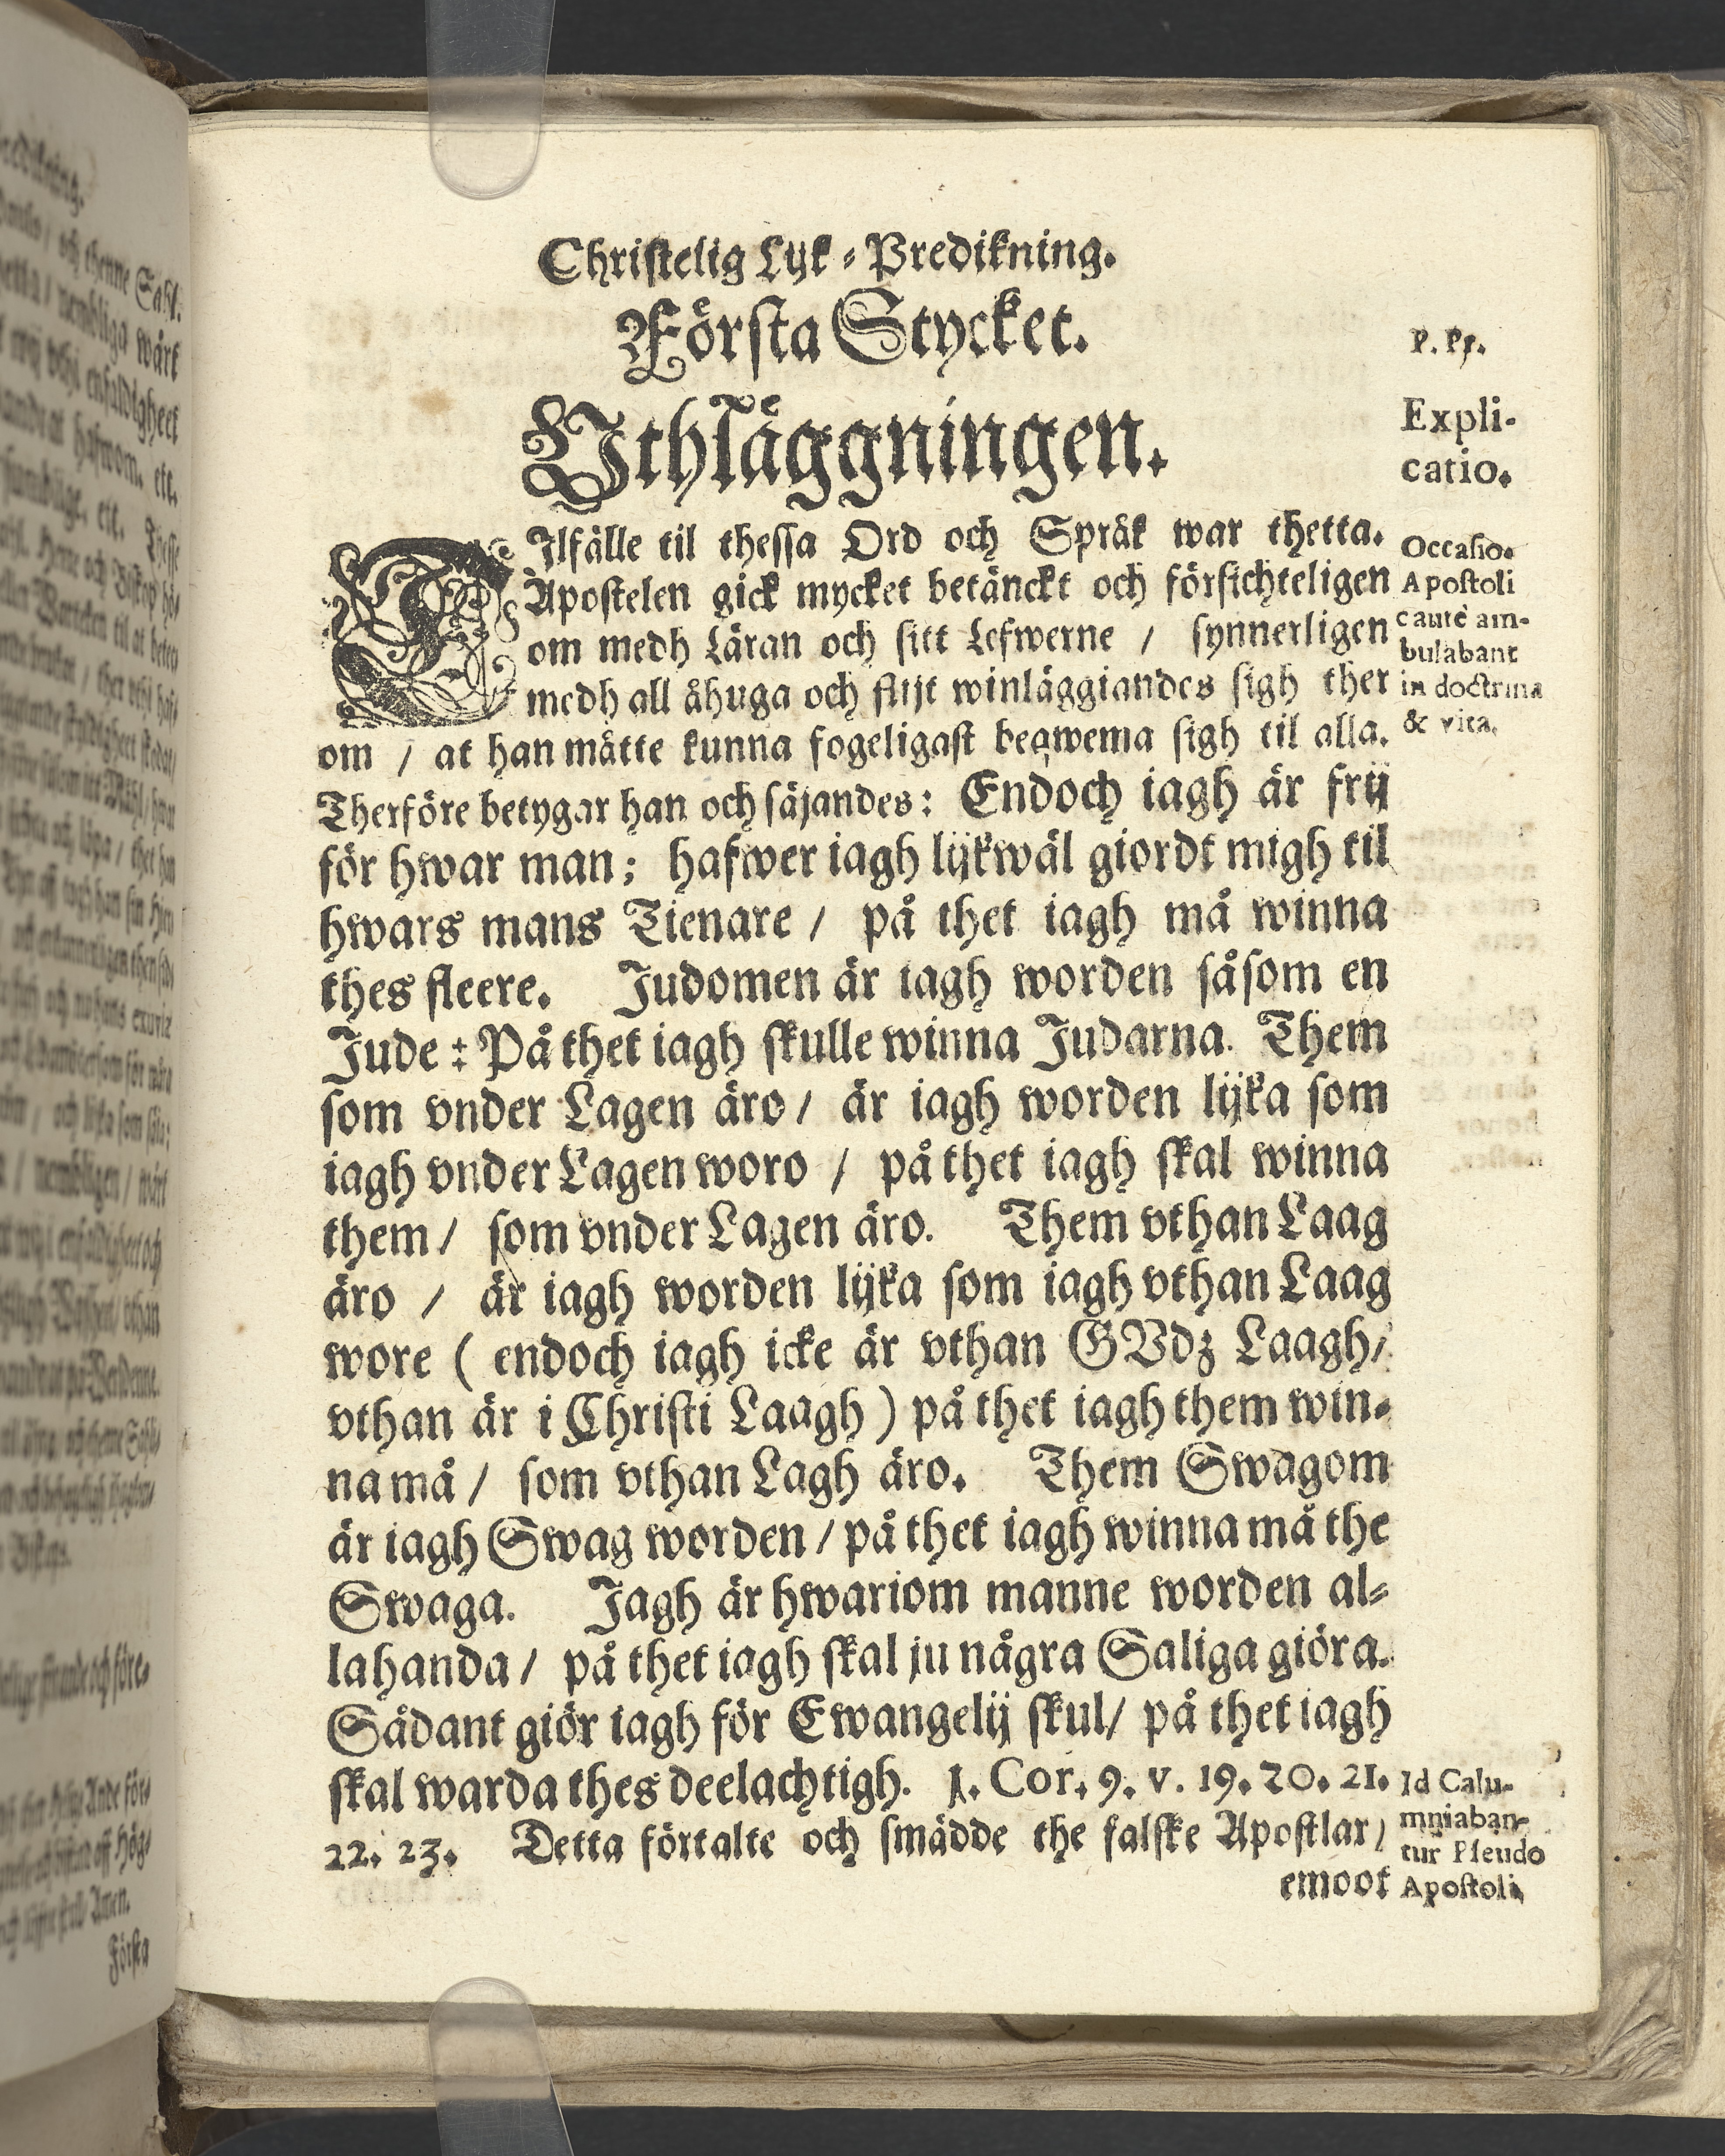 Christelig Lyk-Predikning.
Första Stycket.
Vthläggningen.
Expli-
catio.
TIlfälle til thessa Ord och Språk war thetta.
Apostelen gick mycket betänckt och försichteligen
om medh Läran och sitt Lefwerne / synnerligen
medh all åhuga och flijt winläggiandes sigh ther
om / at han måtte kunna fogeligast beqwema sigh til alla.
Occasio.
Apostoli
cautè am-
bulabant
in doctrina
& vita.
Therföre betygar han och säjandes: Endoch iagh är frij
för hwar man; hafwer iagh lijkwäl giordt migh til
hwars mans Tienare / på thet iagh må winna
thes fleere. Judomen är iagh worden såsom en
Jude: På thet iagh skulle winna Judarna. Them
som vnder Lagen äro / är iagh worden lijka som
iagh vnder Lagen woro / på thet iagh skal winna
them / som vnder Lagen äro. Them vthan Laag
äro / är iagh worden lijka som iagh vthan Laag
wore ( endoch iagh icke är vthan GVdz Laagh /
vthan är i Christi Laagh ) på thet iagh them win-
na må / som vthan Lagh äro. Them Swagom
är iagh Swag worden / på thet iagh winna må the
Swaga. Jagh är hwariom manne worden al-
lahanda / på thet iagh skal ju några Saliga giöra.
Sådant giör iagh för Ewangelij skul / på thet iagh
skal warda thes deelachtigh. 1. Cor. 9. v. 19. 20. 21.
22. 23. Detta förtalte och smädde the falske Apostlar /
emoot
Id Calu-
mniaban-
tur Pseudo
Apostoli.